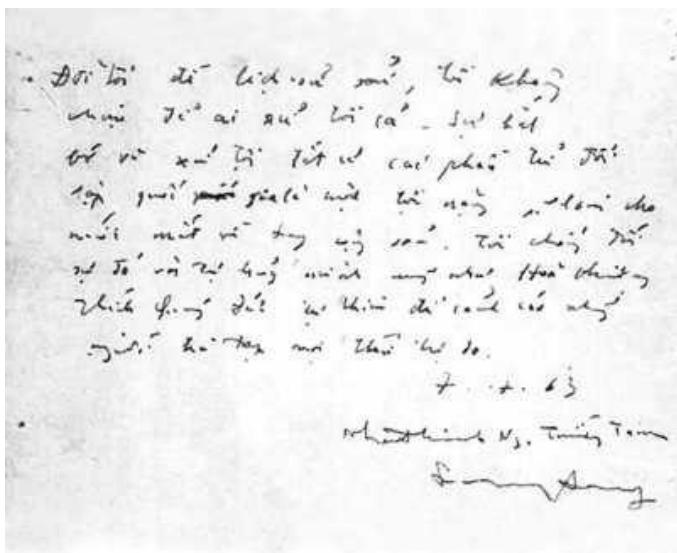 Đời tôi để lịch-sử xử, tôi không
chịu để ai xử tôi cả. Sự bắt
bớ và xử tội tất cả các phần tử đối
lập quốc gia là một tội nặng, sẽ làm cho
nước mất về tay cộng sản. Tôi chống đối
sự đó và tự hủy mình cũng như Hoà thượng
Thích Quảng Đức tự thiêu để cảnh cáo những
người chà đạp mọi thứ tự do.
7.7.63
Nhất Linh Ng. Tường Tam